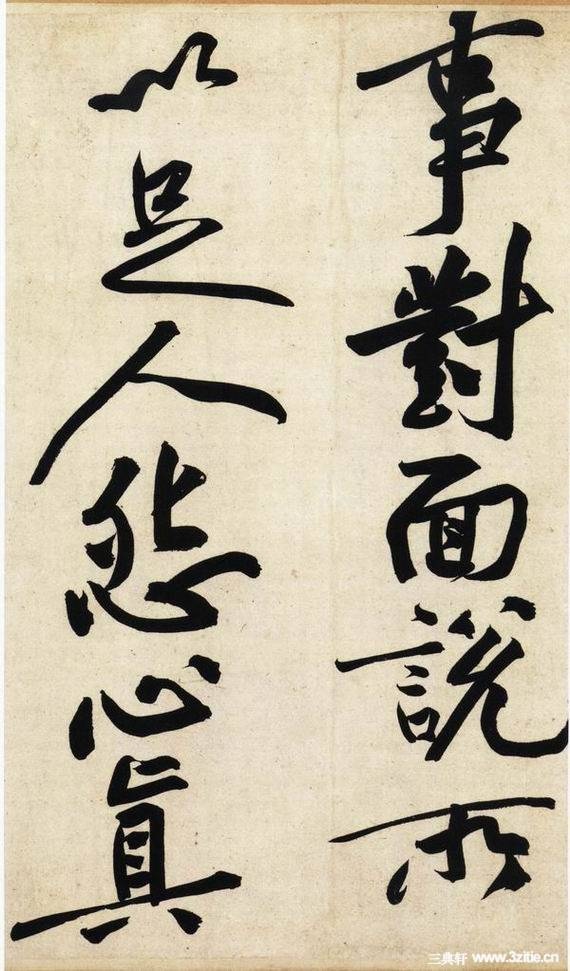 事對面說所
以足人怨心真
三典轩 www.3zitie.cn